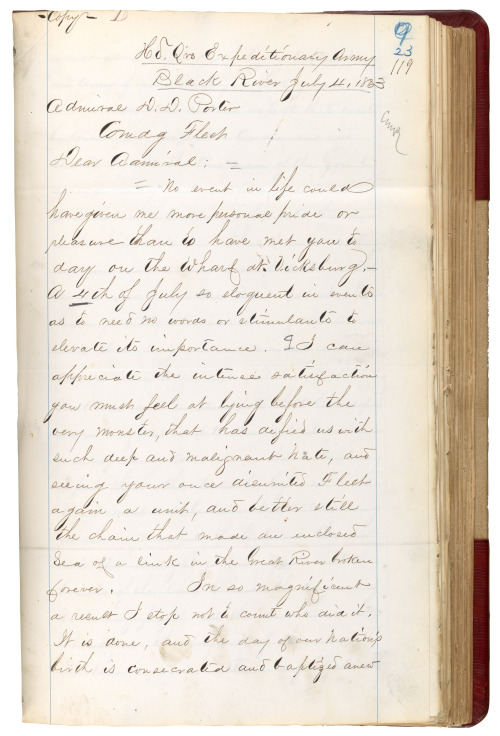 Copy
9
23
119
Hd. Qrs Expeditionary Army
Black River July 4, 1863
Admiral D. D. Porter
Comdg Fleet
Dear Admiral: =
= No event in life could
have given me more personal pride or
pleasure than to have met you to
day on the Wharf at Vicksburg.
A 4th of July so eloquent in events
as to need no words or stimulants to
elevate its importance. I can
appreciate the intense satisfaction
you must feel at lying before the
very monster, that has defied us with
such deep and malignant hate, and
seeing your once disunited Fleet
again a unit, and better still
the chain that made an enclosed
Sea of a link in the Great River broken
forever. In so magnificent
a result I stop not to count who did it.
It is done, and the day of our Nations
birth is consecrated and baptized anew